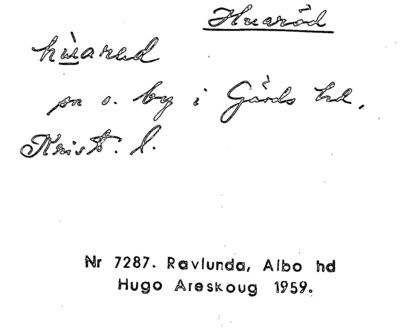 Huaröd
hùarad
sn o. by i Gärds hd,
Krist. l.
Nr 7287. Ravlunda, Albo hd
Hugo Areskoug 1959.